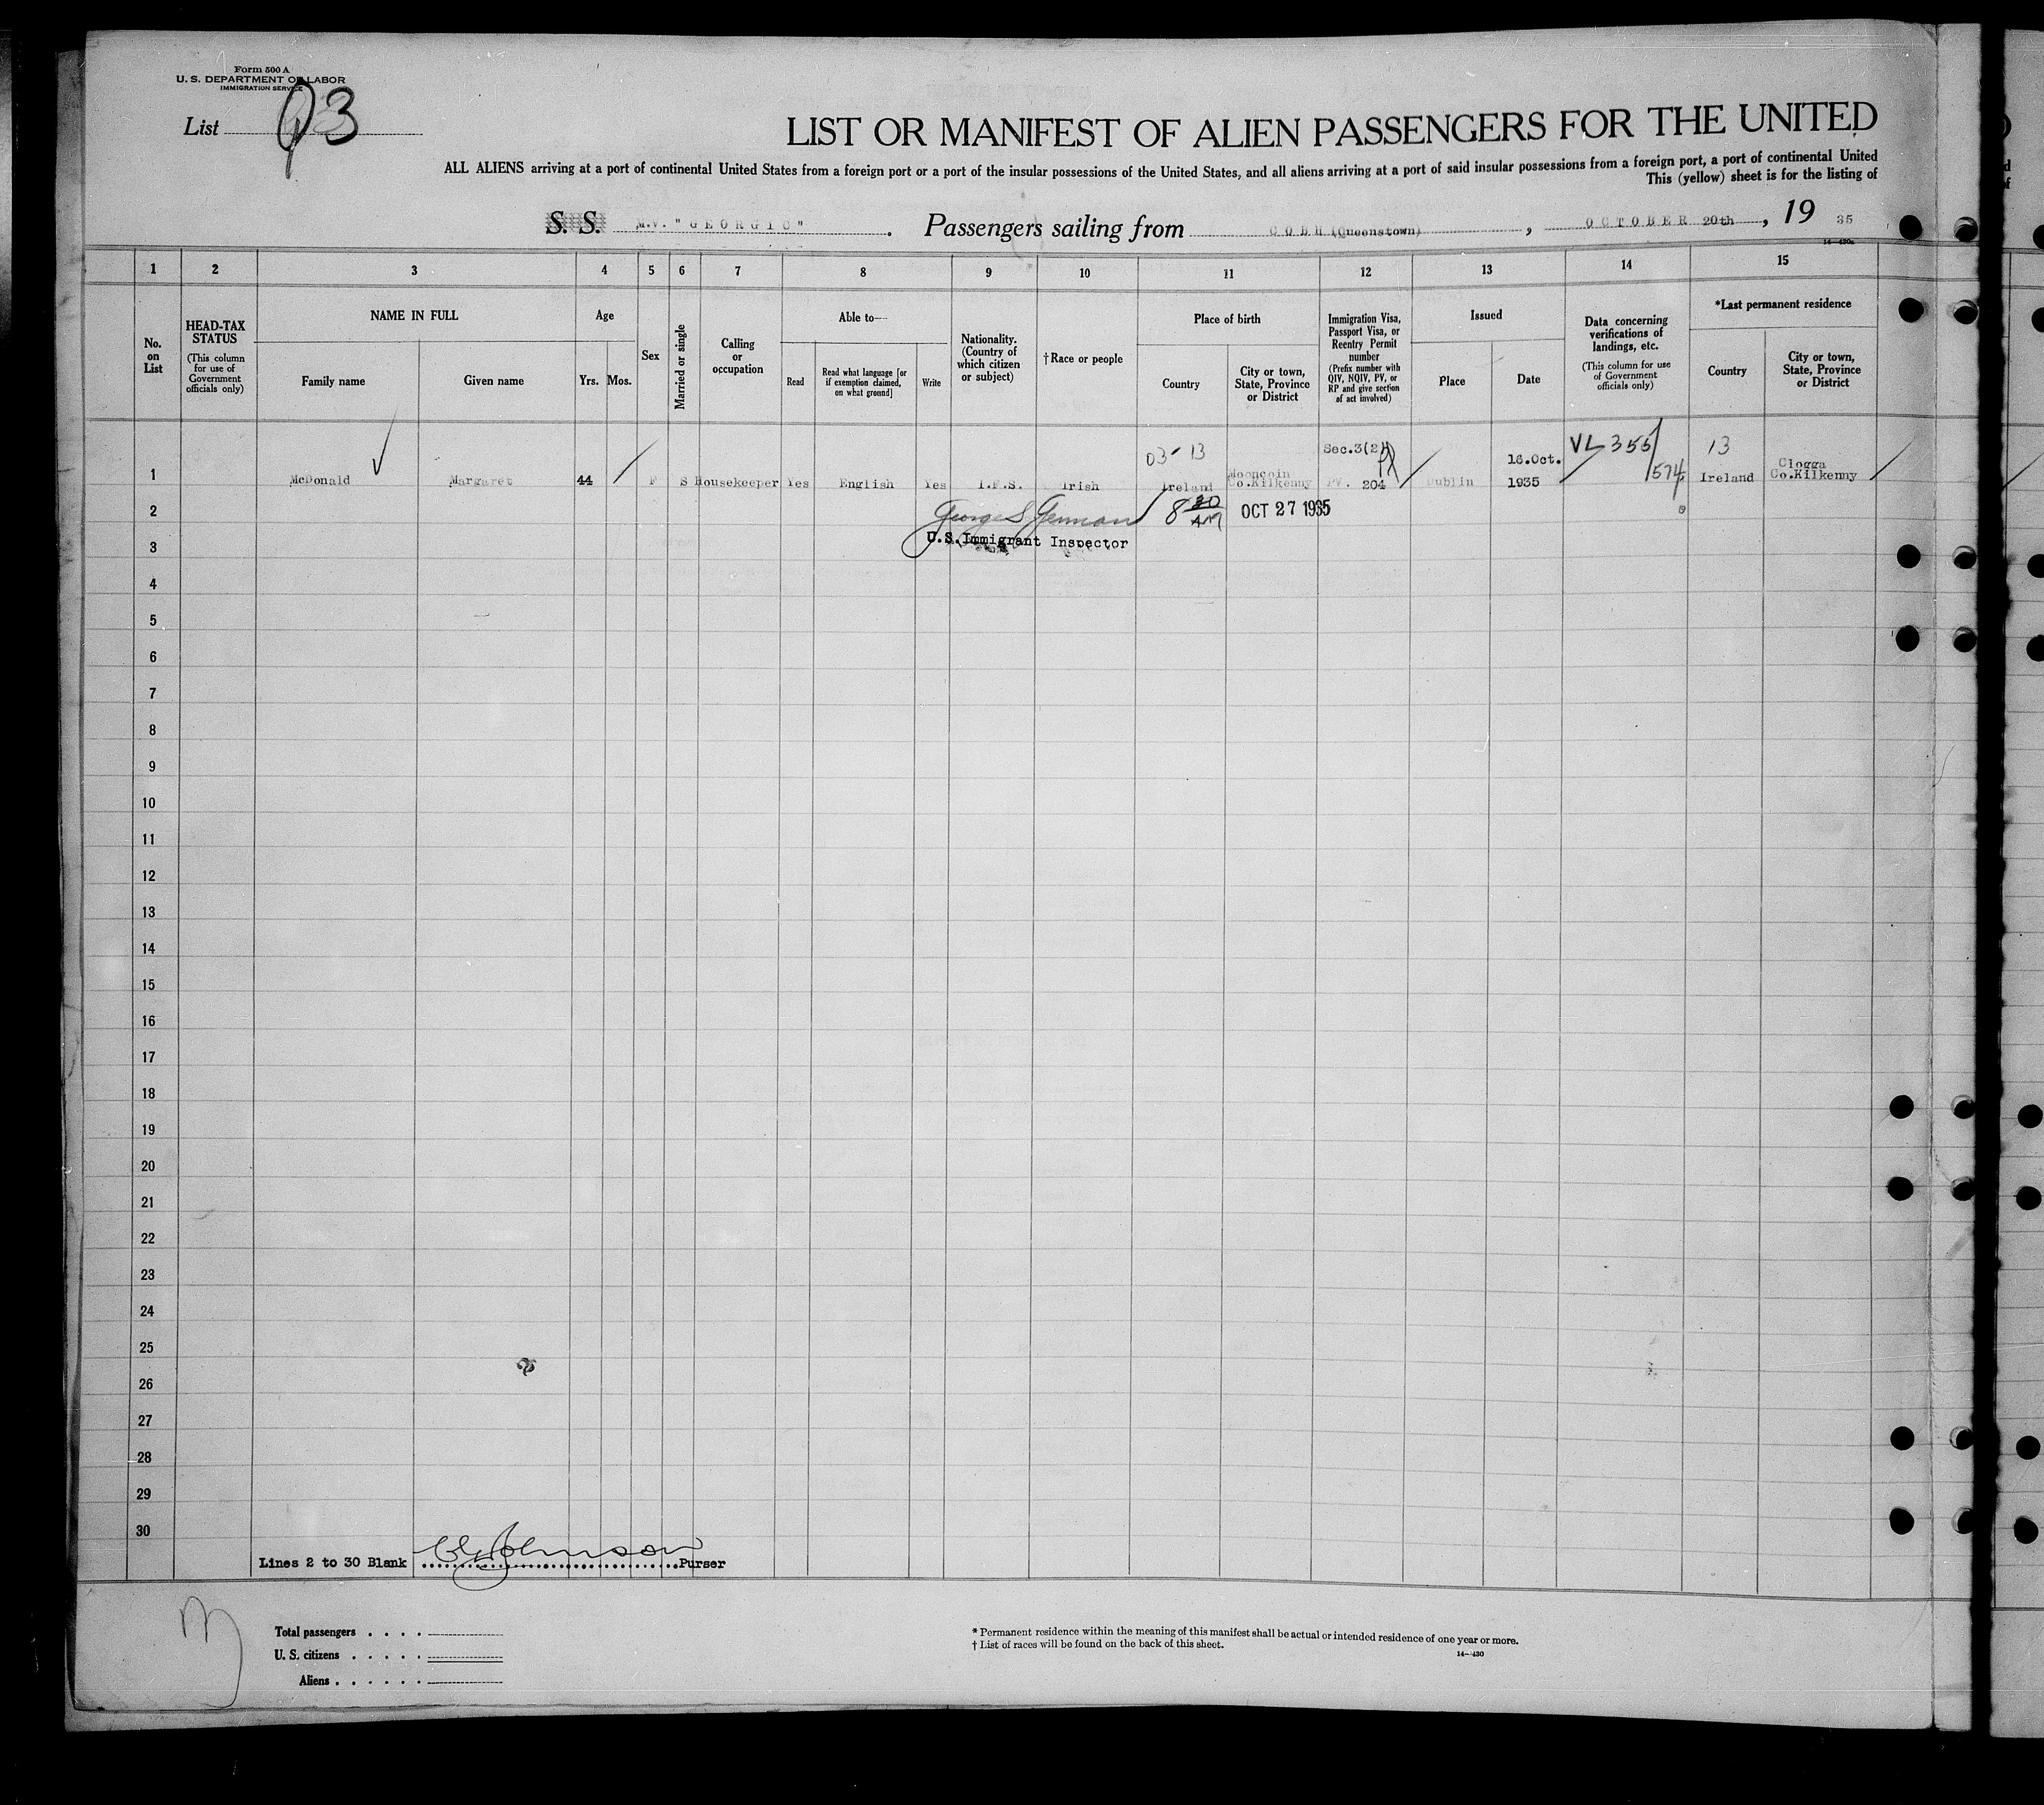 Form 500 A
U. S. DEPARTMENT OF LABOR
IMMIGRATION SERVICE
List 93
LIST OR MANIFEST OF ALIEN PASSENGERS FOR THE UNITED
ALL ALIENS arriving at a port of continental United States from a foreign port or a port of the insular possessions of the United States, and all aliens arriving at a port of said insular possessions from a foreign port, a port of continental United
This (yellow) sheet is for the listing of
S. S. M.V. "GEORGIC". Passengers sailing from COBH (Queenstown), OCTOBER 20th, 19 35
14—430a
1 2 3 4 5 6 7 8 9 10 11 12 13 14 15
No. on List
HEAD-TAX STATUS
(This column for use of Government officials only)
NAME IN FULL
Family name
Given name
Age
Yrs. Mos.
Sex
Married or single
Calling or occupation
Able to—
Read
Read what language [or if exemption claimed, on what ground]
Write
Nationality. (Country of which citizen or subject)
†Race or people
Place of birth
Country
City or town, State, Province or District
Immigration Visa, Passport Visa, or Reentry Permit number
(Prefix number with QIV, NQIV, PV, or RP and give section of act involved)
Issued
Place
Date
Data concerning verifications of landings, etc.
(This column for use of Government officials only)
*Last permanent residence
Country
City or town, State, Province or District
03-13 Sec.3(2) VL 355/574 13
1 McDonald Margaret 44 F S Housekeeper Yes English Yes I.F.S. Irish Ireland Mooncoin Co.Kilkenny PV. 204 Dublin 16.Oct. 1935 Ireland Clogga Co.Kilkenny
2 George S German 8 30 AM OCT 27 1935
3 U.S. Immigrant Inspector
4
5
6
7
8
9
10
11
12
13
14
15
16
17
18
19
20
21
22
23
24
25
26
27
28
29
30
Lines 2 to 30 Blank Johnson Purser
Total passengers
U. S. citizens
Aliens
* Permanent residence within the meaning of this manifest shall be actual or intended residence of one year or more.
† List of races will be found on the back of this sheet.
14—430